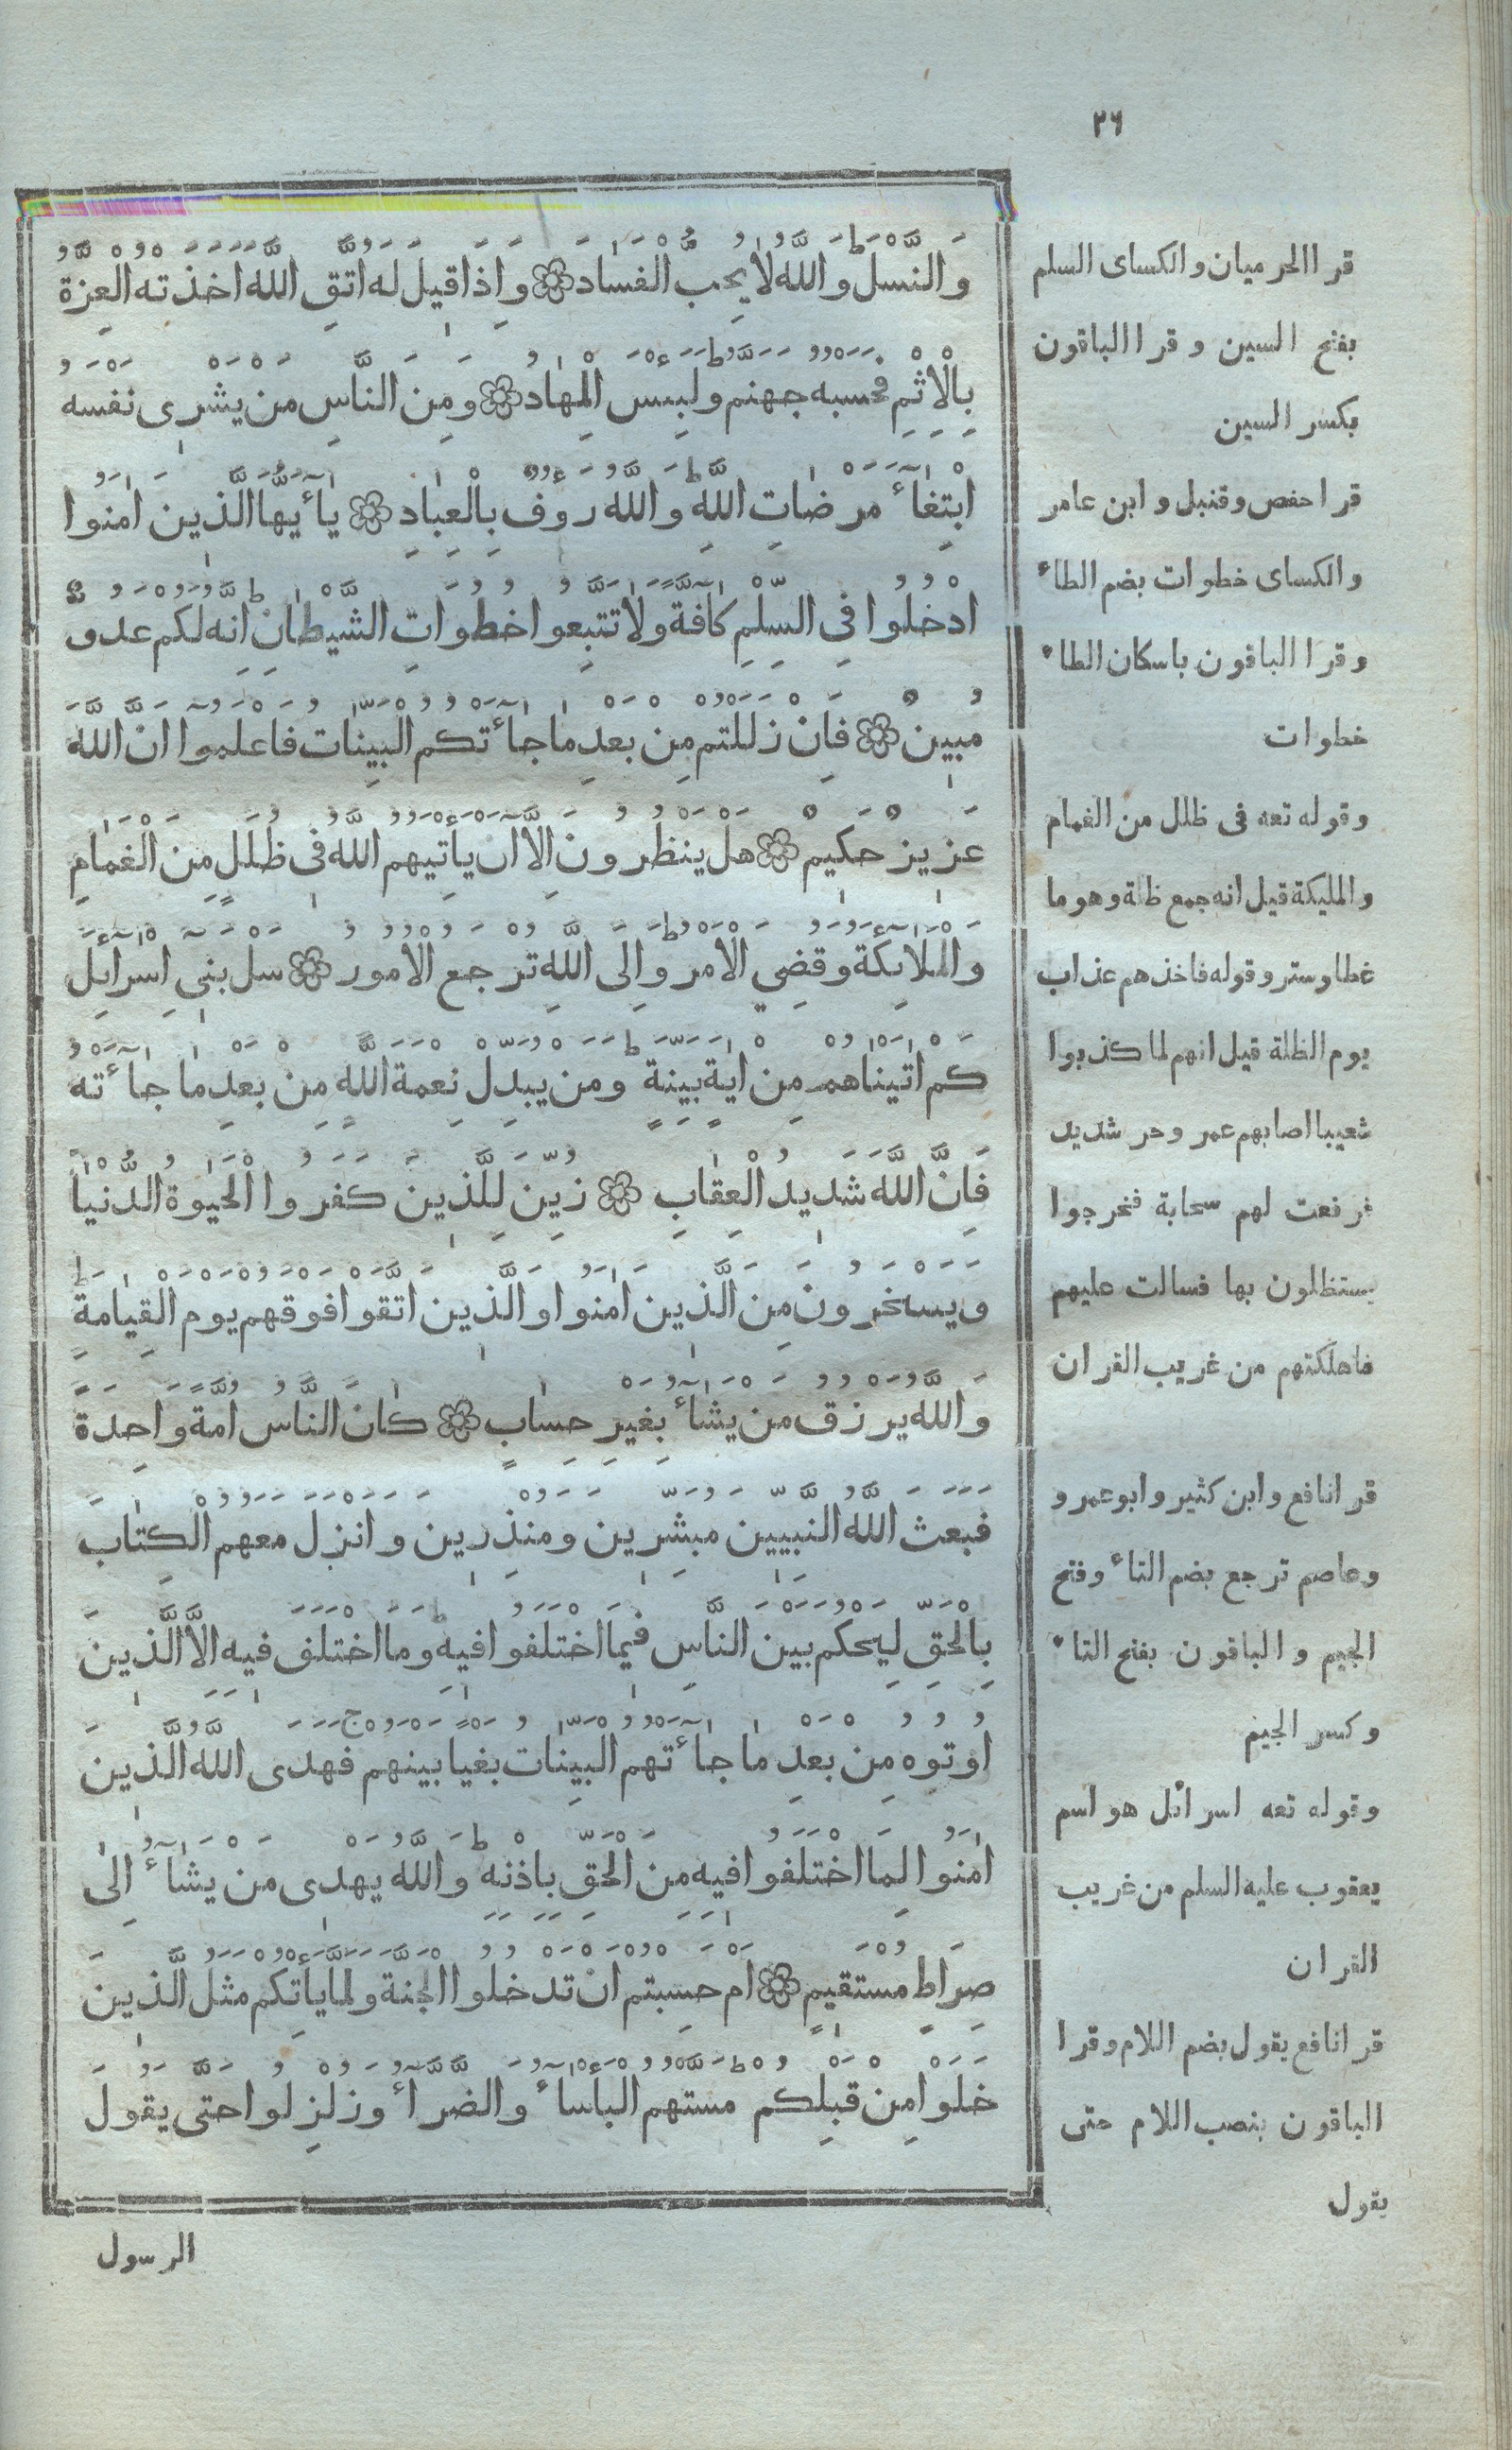 ٢٦
وَالنَّسْلَ وَاللّٰهُ لَا يُحِبُّ الْفَسَادَ ۞ وَإِذَا قِيلَ لَهُ اتَّقِ اللّٰهَ اَخَذَتْهُ الْعِزَّةُ
بِالْإِثْمِ فَحَسْبُهُ جَهَنَّمُ وَلَبِئْسَ الْمِهَادُ ۞ وَمِنَ النَّاسِ مَنْ يَشْرِى نَفْسَهُ
ابْتِغَاءَ مَرْضَاتِ اللّٰهِ وَاللّٰهُ رَؤُفٌ بِالْعِبَادِ ۞ يَا أَيُّهَا الَّذِينَ اٰمَنُوا
ادْخُلُوا فِى السِّلْمِ كَافَّةً وَلَا تَتَّبِعُوا خُطُوَاتِ الشَّيْطَانِ اِنَّهُ لَكُمْ عَدُوٌّ
مُبِينٌ ۞ فَاِنْ زَلَلْتُمْ مِنْ بَعْدِ مَا جَاءَتْكُمُ الْبَيِّنَاتُ فَاعْلَمُوا اَنَّ اللّٰهَ
عَزِيزٌ حَكِيمٌ ۞ هَلْ يَنْظُرُونَ اِلَّا اَنْ يَأْتِيَهُمُ اللّٰهُ فِى ظُلَلٍ مِنَ الْغَمَامِ
وَالْمَلَائِكَةُ وَقُضِيَ الْاَمْرُ وَاِلَى اللّٰهِ تُرْجَعُ الْاُمُورُ ۞ سَلْ بَنِى اِسْرَائِلَ
كَمْ اٰتَيْنَاهُمْ مِنْ اٰيَةٍ بَيِّنَةٍ وَمَنْ يُبَدِّلْ نِعْمَةَ اللّٰهِ مِنْ بَعْدِ مَا جَاءَتْهُ
فَاِنَّ اللّٰهَ شَدِيدُ الْعِقَابِ ۞ زُيِّنَ لِلَّذِينَ كَفَرُوا الْحَيٰوةُ الدُّنْيَا
وَيَسْخَرُونَ مِنَ الَّذِينَ اٰمَنُوا وَالَّذِينَ اتَّقَوْا فَوْقَهُمْ يَوْمَ الْقِيَامَةِ
وَاللّٰهُ يَرْزُقُ مَنْ يَشَاءُ بِغَيْرِ حِسَابٍ ۞ كَانَ النَّاسُ اُمَّةً وَاحِدَةً
فَبَعَثَ اللّٰهُ النَّبِيِّينَ مُبَشِّرِينَ وَمُنْذِرِينَ وَاَنْزَلَ مَعَهُمُ الْكِتَابَ
بِالْحَقِّ لِيَحْكُمَ بَيْنَ النَّاسِ فِيمَا اخْتَلَفُوا فِيهِ وَمَا اخْتَلَفَ فِيهِ اِلَّا الَّذِينَ
اُوتُوهُ مِنْ بَعْدِ مَا جَاءَتْهُمُ الْبَيِّنَاتُ بَغْيًا بَيْنَهُمْ فَهَدَى اللّٰهُ الَّذِينَ
اٰمَنُوا لِمَا اخْتَلَفُوا فِيهِ مِنَ الْحَقِّ بِاِذْنِهِ وَاللّٰهُ يَهْدِى مَنْ يَشَاءُ اِلٰى
صِرَاطٍ مُسْتَقِيمٍ ۞ اَمْ حَسِبْتُمْ اَنْ تَدْخُلُوا الْجَنَّةَ وَلَمَّا يَأْتِكُمْ مَثَلُ الَّذِينَ
خَلَوْا مِنْ قَبْلِكُمْ مَسَّتْهُمُ الْبَأْسَاءُ وَالضَّرَّاءُ وَزُلْزِلُوا حَتّٰى يَقُولَ
الرسول
قرا الحرميان والكساى السلم
بفتح السين وقرا الباقون
بكسر السين
قرا حفص وقنبل وابن عامر
والكساى خطوات بضم الطاء
وقرا الباقون باسكان الطاء
خطوات
وقوله تعه فى ظلل من الغمام
والمليكة قيل انه جمع ظلة وهو ما
غطا وستر وقوله فاخذهم عذاب
يوم الظلة قيل انهم لما كذبوا
شعيبا اصابهم عمر وحر شديد
فرفعت لهم سحابة فخرجوا
يستظلون بها فسالت عليهم
فاهلكتهم من غريب القران
قرا نافع وابن كثير وابو عمرو
وعاصم ترجع بضم التاء وفتح
الجيم والباقون بفتح التاء
وكسر الجيم
وقوله تعه اسرائل هو اسم
يعقوب عليه السلم من غريب
القران
قرا نافع يقول بضم اللام وقرا
الباقون بنصب اللام حتى
يقول